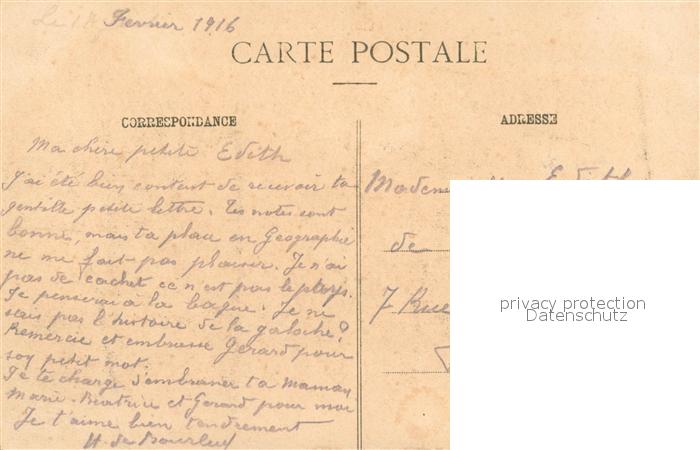 Le 18 Fevrier 1916
CARTE POSTALE
CORRESPONDANCE
ADRESSE
Ma chère petite Edith
J'ai été bien content de recevoir ta
gentille petite lettre. Tes notes sont
bonne, mais ta place en Geographie
ne me fait pas plaisir. Je n'ai
pas de cachet ce n'est pas le
Je penserai à la bague. Je ne
sais pas l'histoire de la galoche?
Remercie et embrasse Gerard pour
soy petit mot.
Je te charge d'embrasser ta Maman
Marie-Béatrice et Gerard pour moi
Je t'aime bien tendrement
H. de
Edith
de
7 Rue
privacy protection
Datenschutz